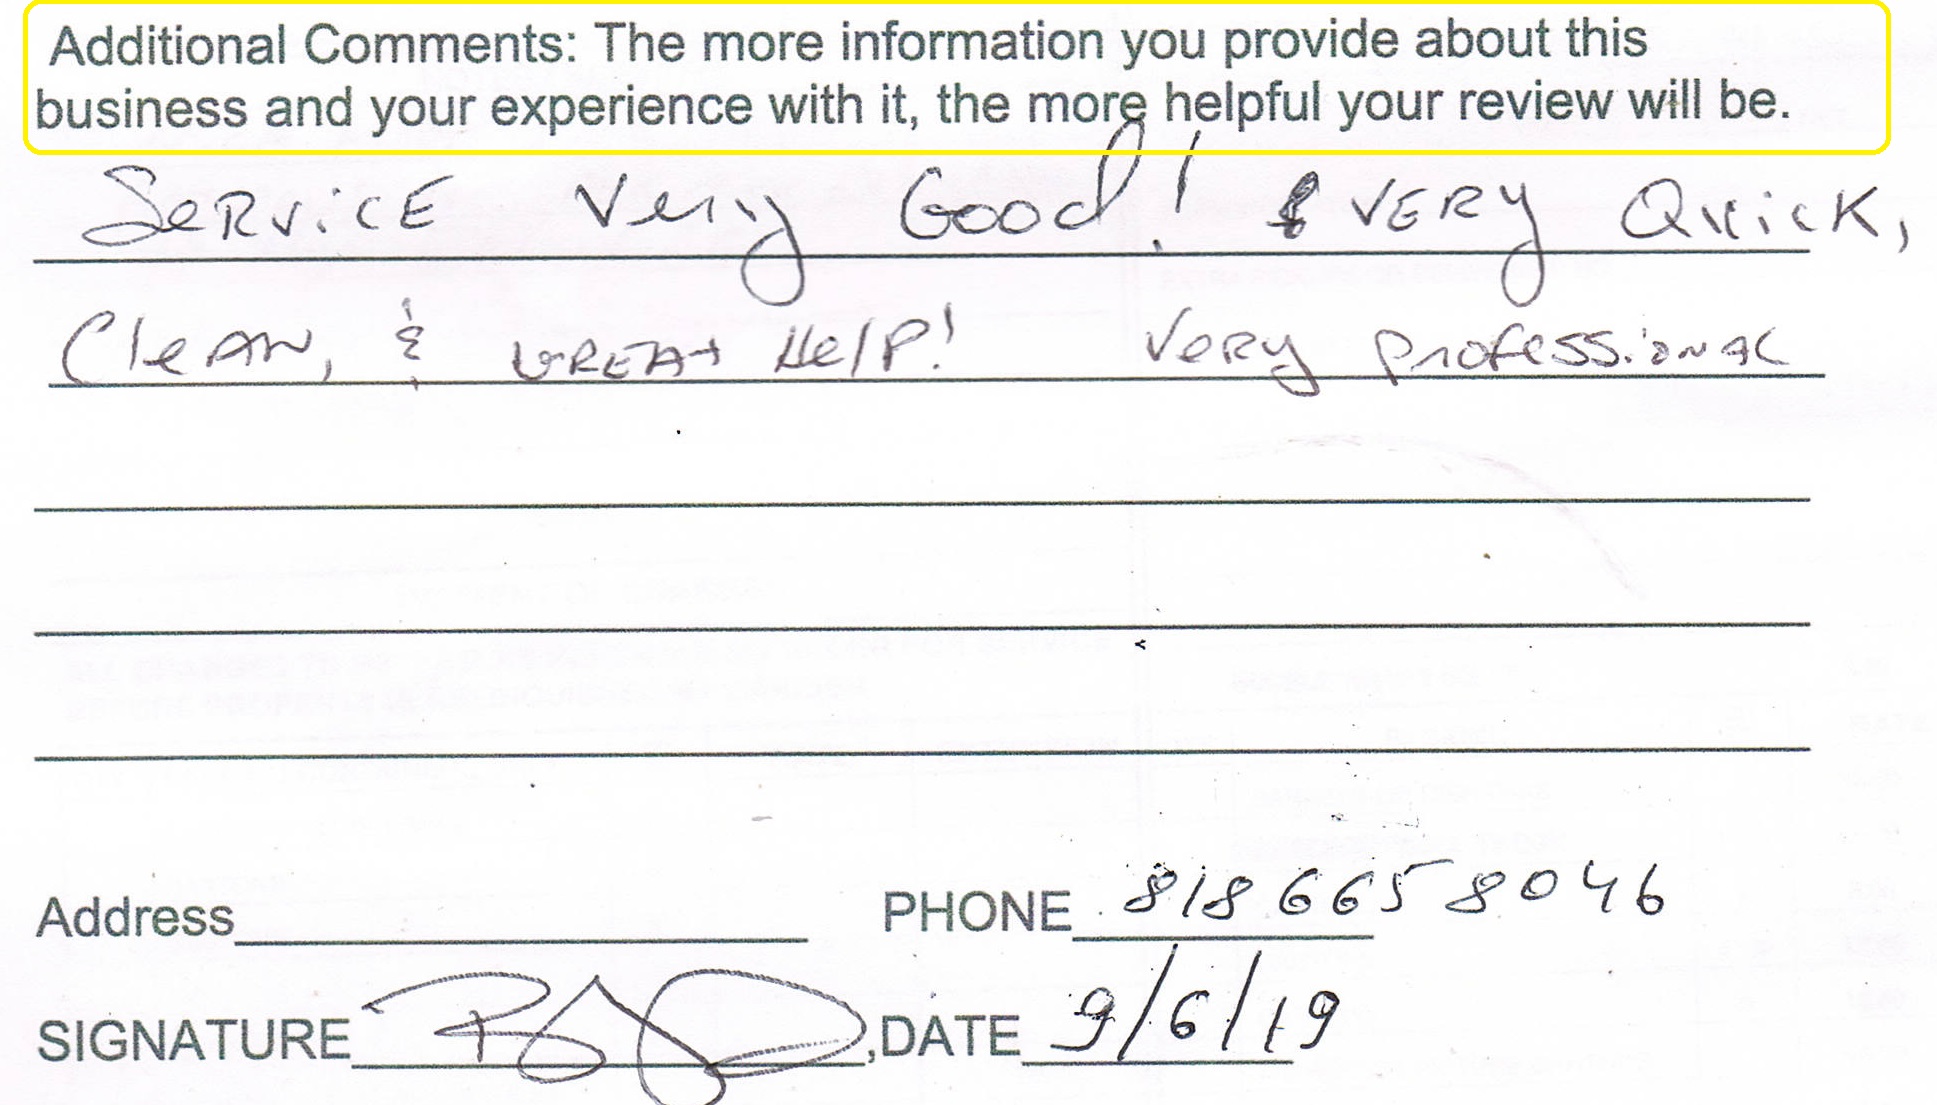 Additional Comments: The more information you provide about this
business and your experience with it, the more helpful your review will be.
Service Very Good! & VERY Quick,
Clean, & GREAT Help! Very Professional
Address PHONE 818 665 8046
SIGNATURE ,DATE 9/6/19